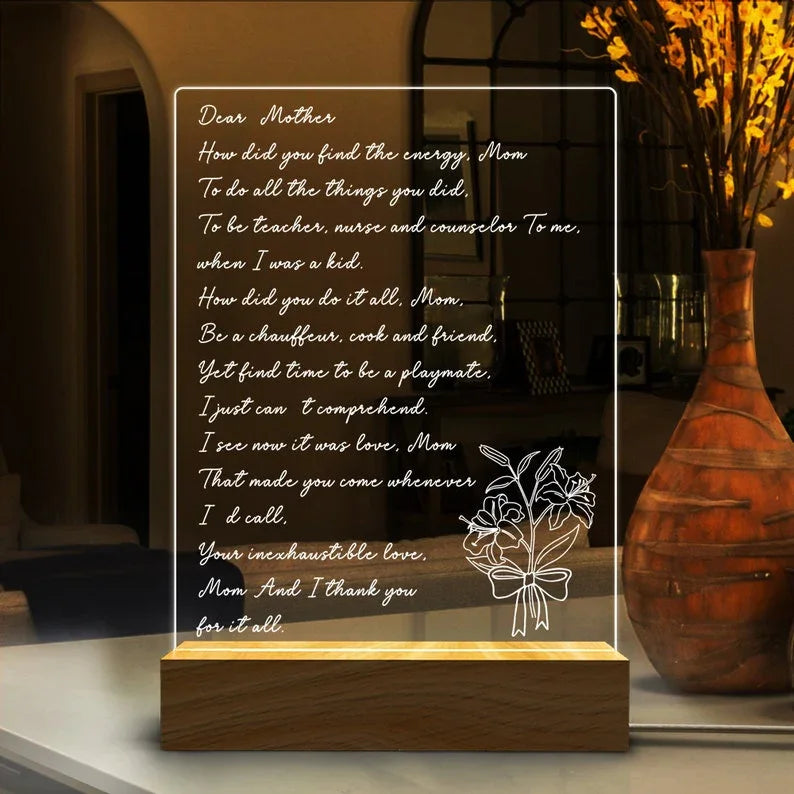 Dear Mother
How did you find the energy, Mom
To do all the things you did,
To be teacher, nurse and counselor To me,
when I was a kid.
How did you do it all, Mom,
Be a chauffeur, cook and friend,
Yet find time to be a playmate,
I just can t comprehend.
I see now it was love, Mom
That made you come whenever
I d call,
Your inexhaustible love,
Mom And I thank you
for it all.